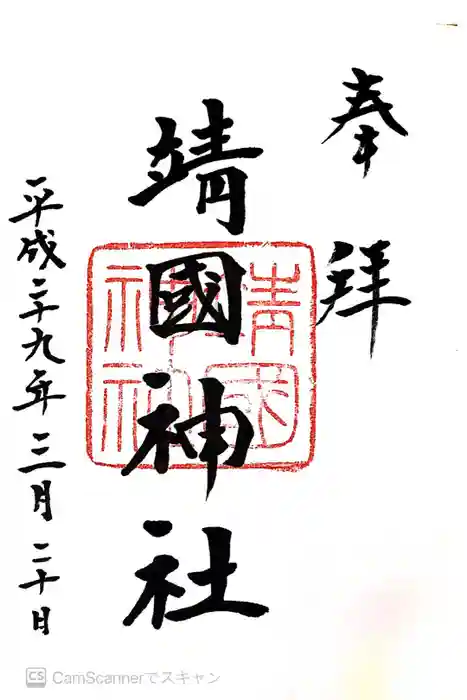 奉拝
靖國神社
靖國神社
平成二十九年三月二十日
CS CamScannerでスキャン